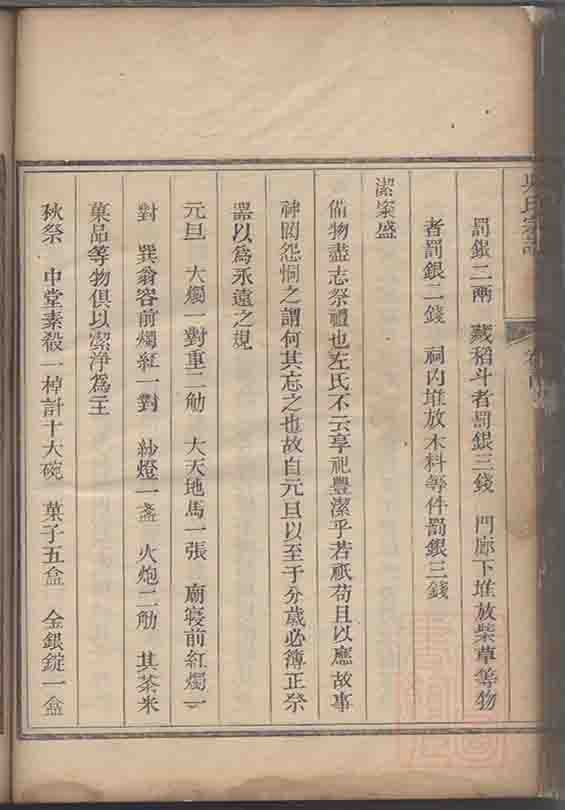 罰銀二兩　藏稻斗者罰銀三錢　門廊下堆放柴草等物
者罰銀二錢　祠內堆放木料等件罰銀三錢
潔粢盛
備物盡志祭禮也左氏不云享祀豐潔乎若祇苟且以應故事
神罔怨恫之謂何其忘之也故自元旦以至于分歲必簿正祭
器以為永遠之規
元旦　大燭一對重二觔　大天地馬一張　廟寢前紅燭一
對　巽翁容前燭紅一對　紗燈一盞　火炮二觔　其茶米
菓品等物俱以潔淨為主
秋祭　中堂素殽一棹計十大碗　菓子五盒　金銀錠一盒